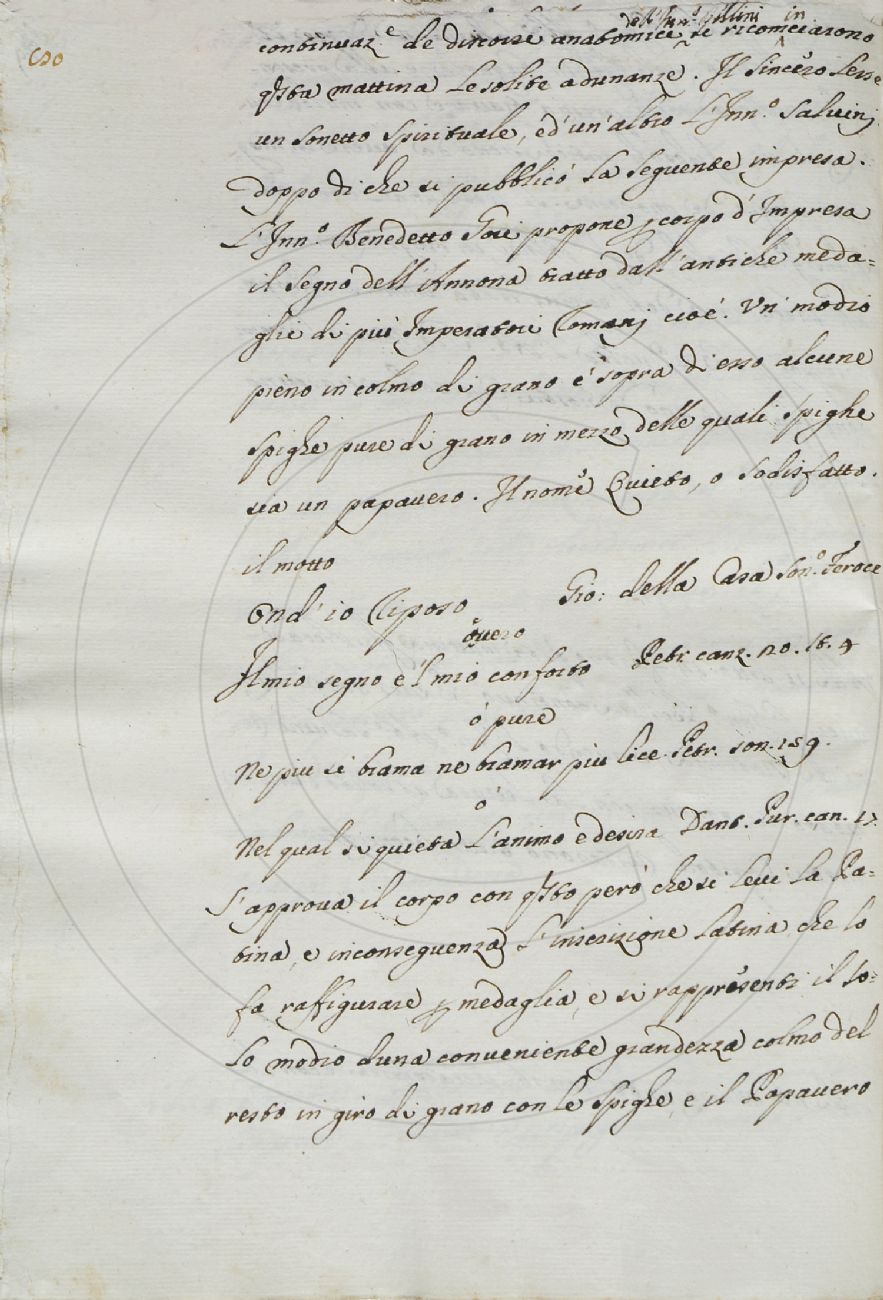 dell'Inn.º Bellini in
continuaz.e de discorsi anatomici si ricomciarono
q.sta mattina Le solite adunanze. Il Sincero Lesse
un sonetto spirituale, ed un'altro L'Inn.º Salvinj
doppo di che si pubblicó La seguente impresa.
L'Inn.º Benedetto Gori propone p corpo d'Impresa
il segno dell'Annona tratto dall'antiche meda=
glie di piú Imperatori Romanj cioé. Un' modio
pieno in colmo di grano e sopra di esso alcune
spighe pure di grano in mezzo delle quali spighe
sia un papavero. Il nome Quieto, o sodisfatto.
il motto
Ond'io Riposo Gio: della Casa Son.º Feroce
óvero
Il mio segno e'l mio conforto Petr. canz. 20. st. 4
ó pure
Ne piu si brama ne bramar piu lice Petr. son. 159.
ó
Nel qual si quieta L'animo e desira Dant. Pur. can. 17.
S'approva il corpo con q.sto peró che si levi La Pa=
tina, e in conseguenza L'inscrizione Latina che lo
fa raffigurare p medaglia, e si rappresenti il so=
lo modio d'una conveniente grandezza colmo del
resto in giro di grano con le spighe, e il Papavero